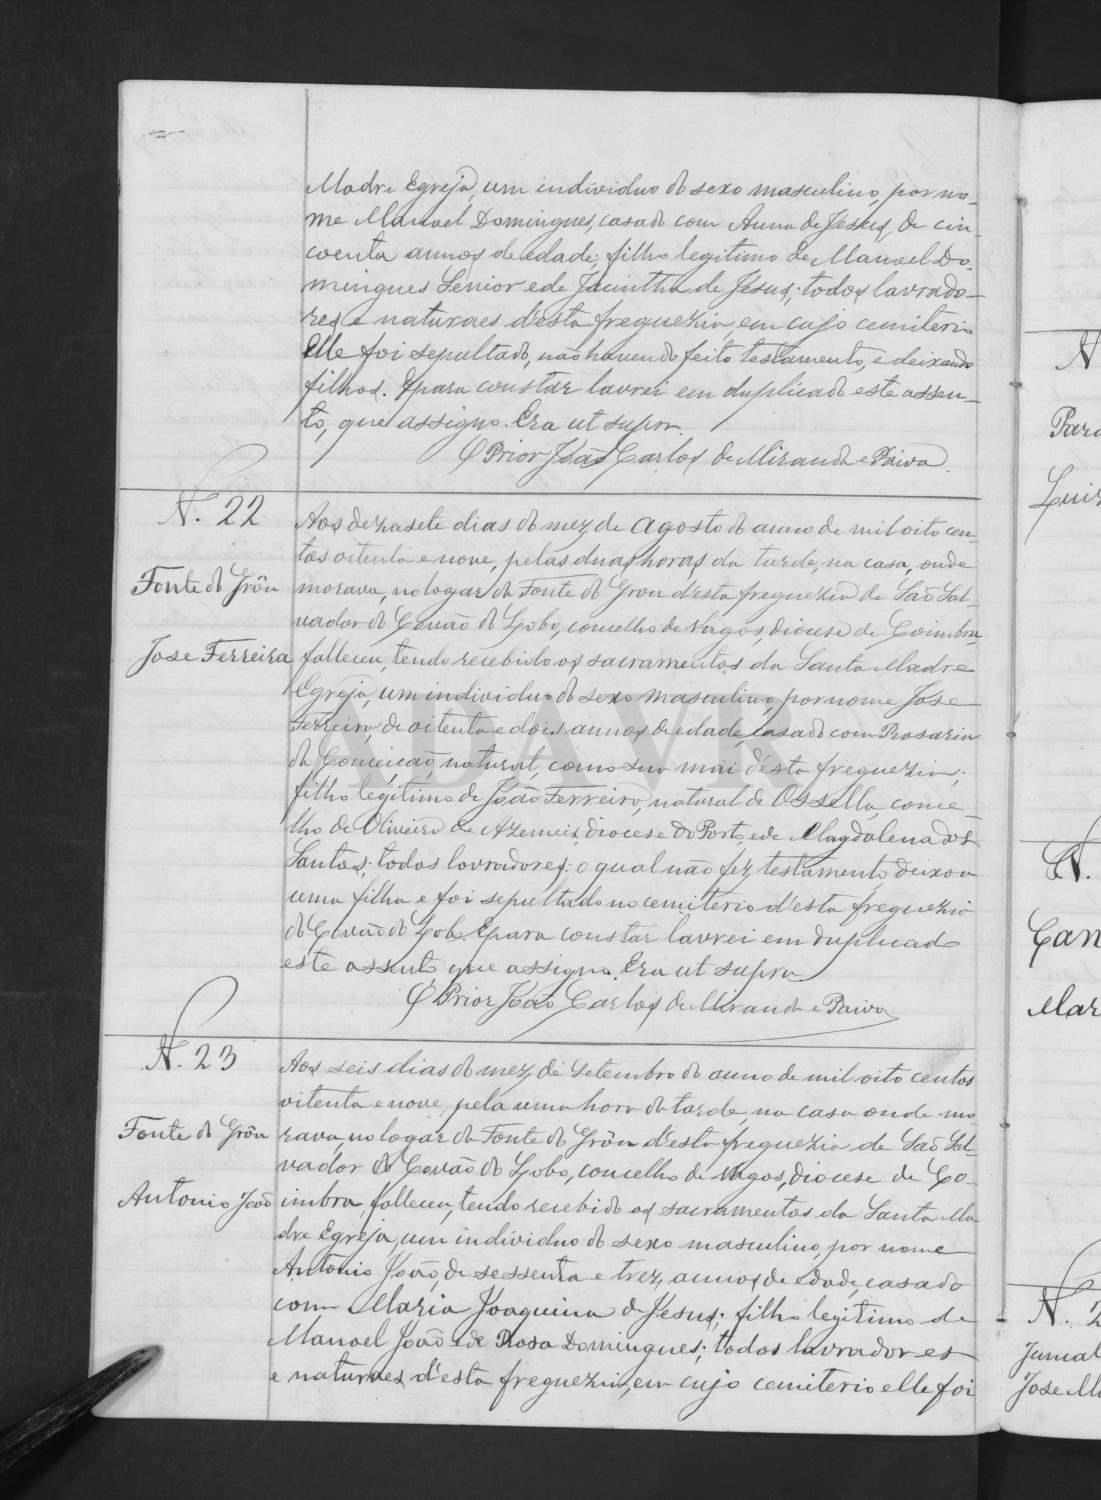 Madre Egreja, um individuo do sexo masculino, por no-
me Manoel Domingues, casado com Anna de Jesus, de cin-
coenta annos de edade; filho legitimo de Manoel Do-
mingues Senior e de Jacintha de Jesus; todos lavrado-
res e naturaes d'esta freguezia, em cujo cemiterio
elle foi sepultado, não havendo feito testamento, e deixando
filhos. E para constar lavrei em duplicado este assen-
to, que assigno. Era ut supra.
O Prior João Carlos de Miranda e Paiva.
N. 22
Fonte do Grôu
Jose Ferreira
Aos dezasete dias do mez de Agosto do anno de mil oito cen-
tos oitenta e nove, pelas duas horas da tarde, na casa, onde
morava, no logar da Fonte do Grou d'esta freguezia de São Sal-
vador do Covão do Lobo, concelho de Vagos, diocese de Coimbra,
falleceu, tendo recebido os sacramentos da Santa Madre
Egreja, um individuo do sexo masculino, por nome Jose
Ferreira, de oitenta e dois annos de edade, casado com Rosaria
da Conceição, natural, como sua mãi d'esta freguezia;
filho legitimo de João Ferreira, natural de Ossella, conce-
lho de Oliveira de Azemeis, diocese do Porto, e de Magdalena dos
Santos; todos lavradores; o qual não fez testamento, deixou
uma filha e foi sepultado no cemiterio d'esta freguezia
do Covão do Lobo. E para constar lavrei em duplicado
este assento que assigno. Era ut supra
O Prior João Carlos de Miranda e Paiva
N. 23
Fonte do Grôu
Antonio João
Aos seis dias do mez de Setembro do anno de mil oito centos
oitenta e nove, pela uma hora da tarde, na casa onde mo-
rava, no logar da Fonte do Grôu d'esta freguezia de São Sal-
vador do Covão do Lobo, concelho de Vagos, diocese de Co-
imbra, falleceu, tendo recebido os sacramentos da Santa Ma
dre Egreja, um individuo do sexo masculino, por nome
Antonio João, de sessenta e trez annos de edade, casado
com Maria Joaquina de Jesus; filho legitimo de
Manoel João e de Rosa Domingues; todos lavradores
e naturaes d'esta freguezia, em cujo cemiterio elle foi
N
Luiz
N.
Mar
N. 2
Jose M
ADAVR